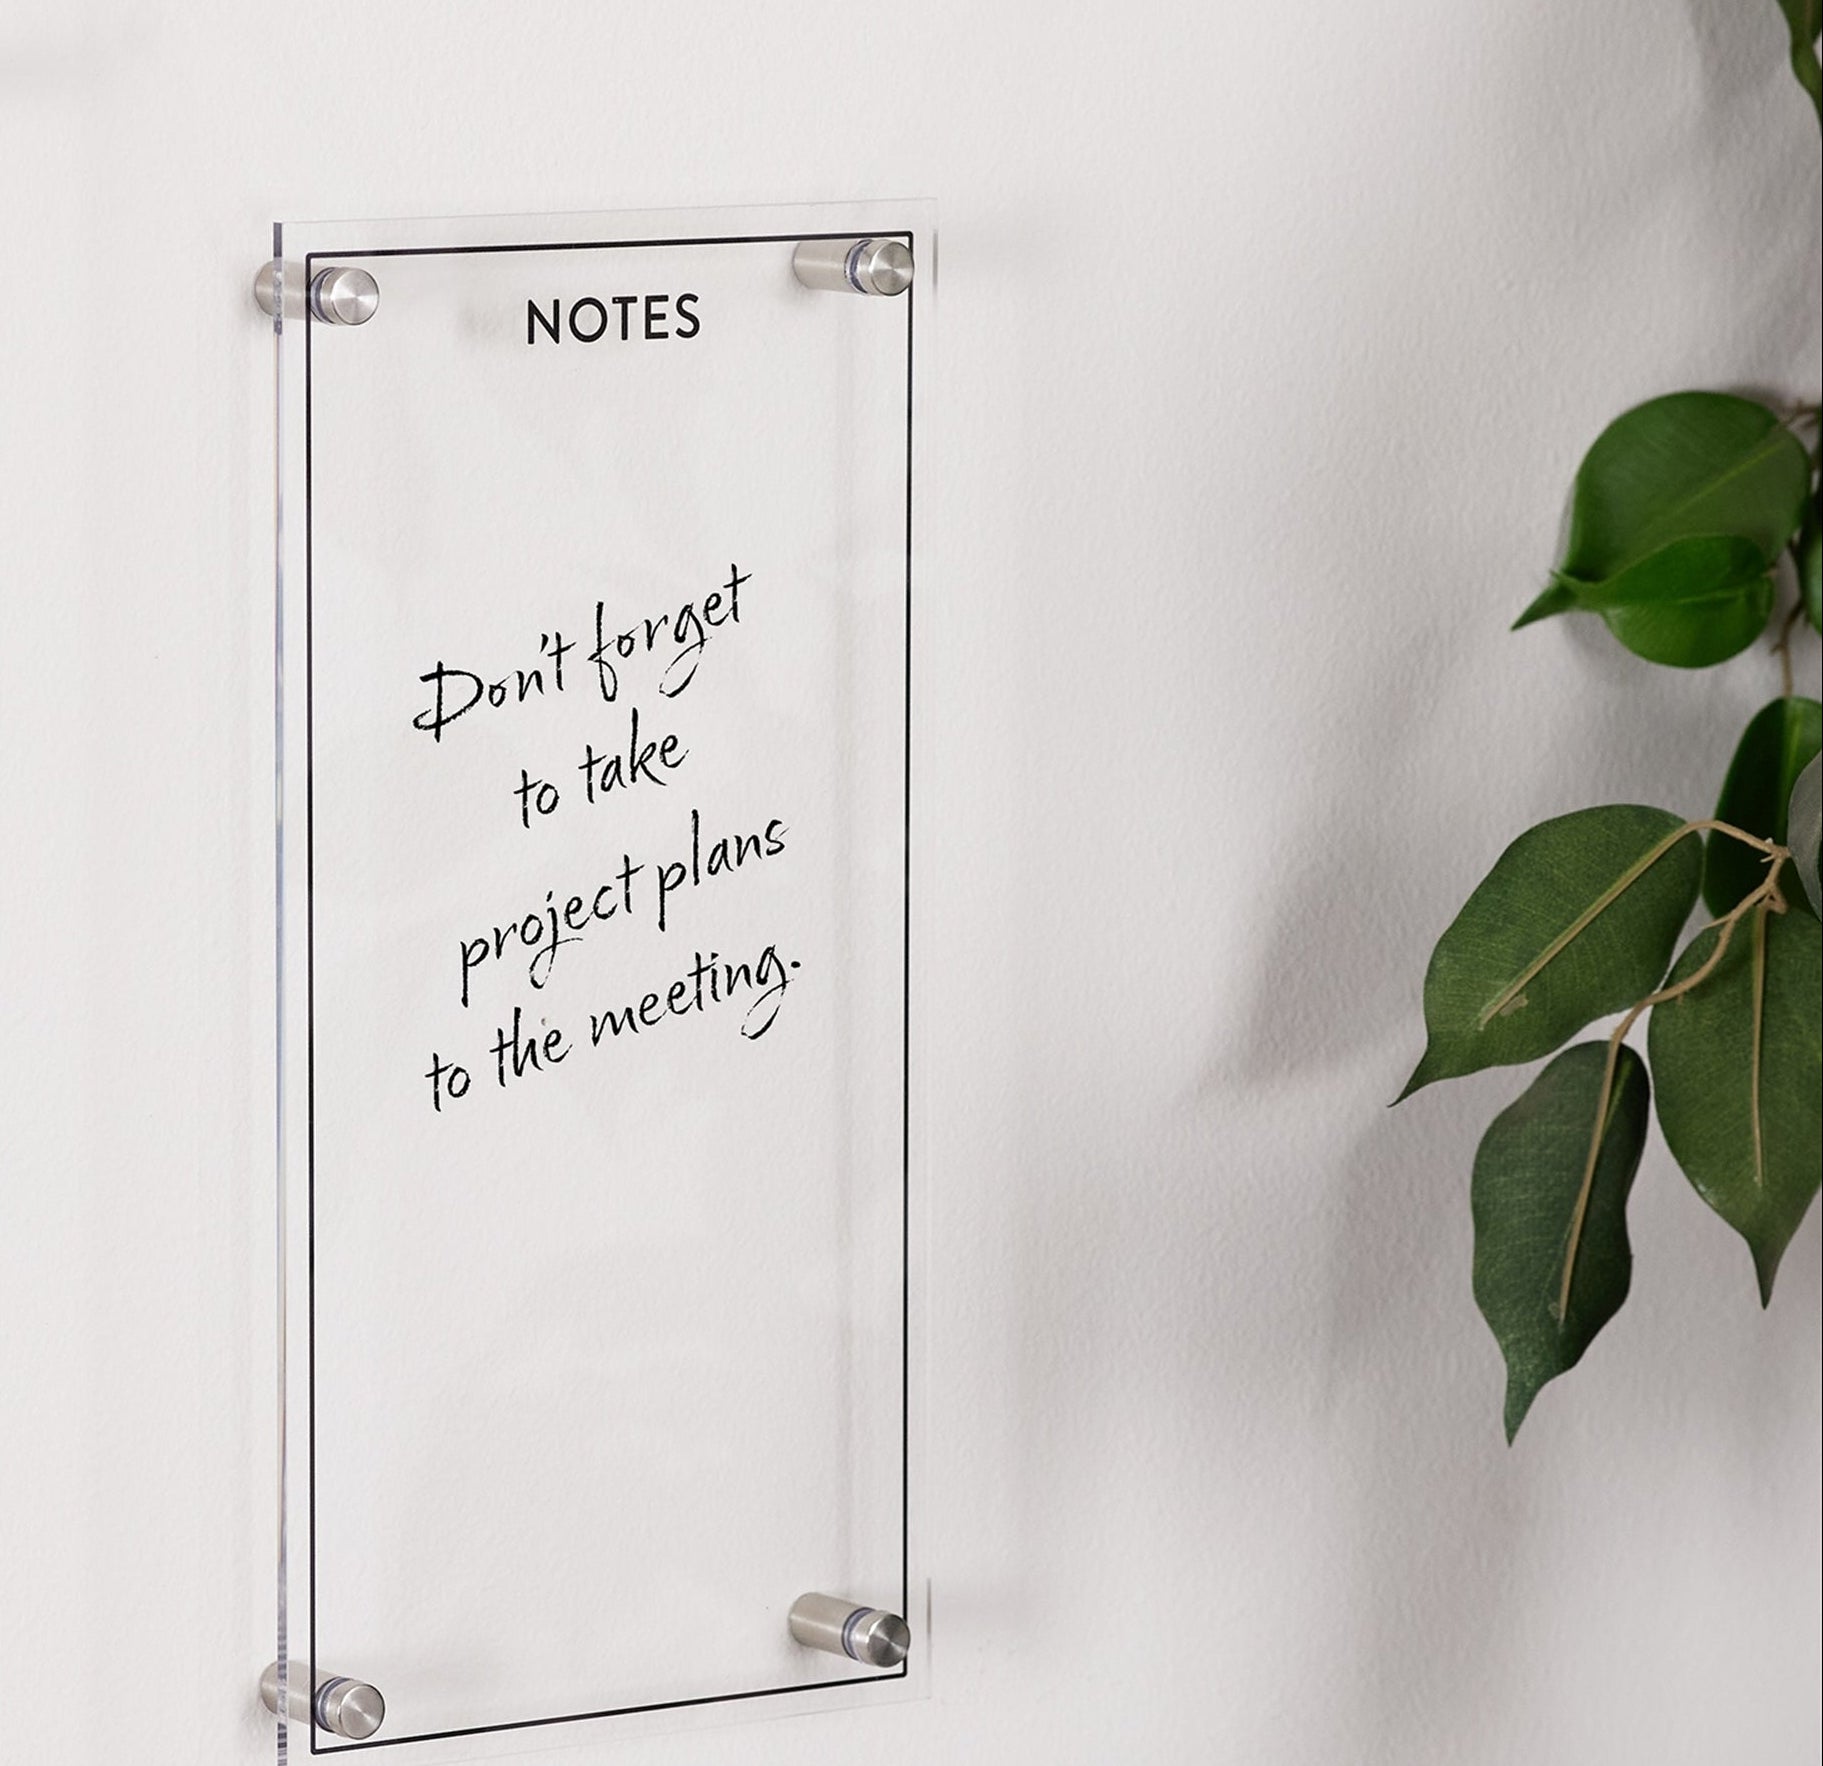 NOTES
Don't forget
to take
project plans
to the meeting.